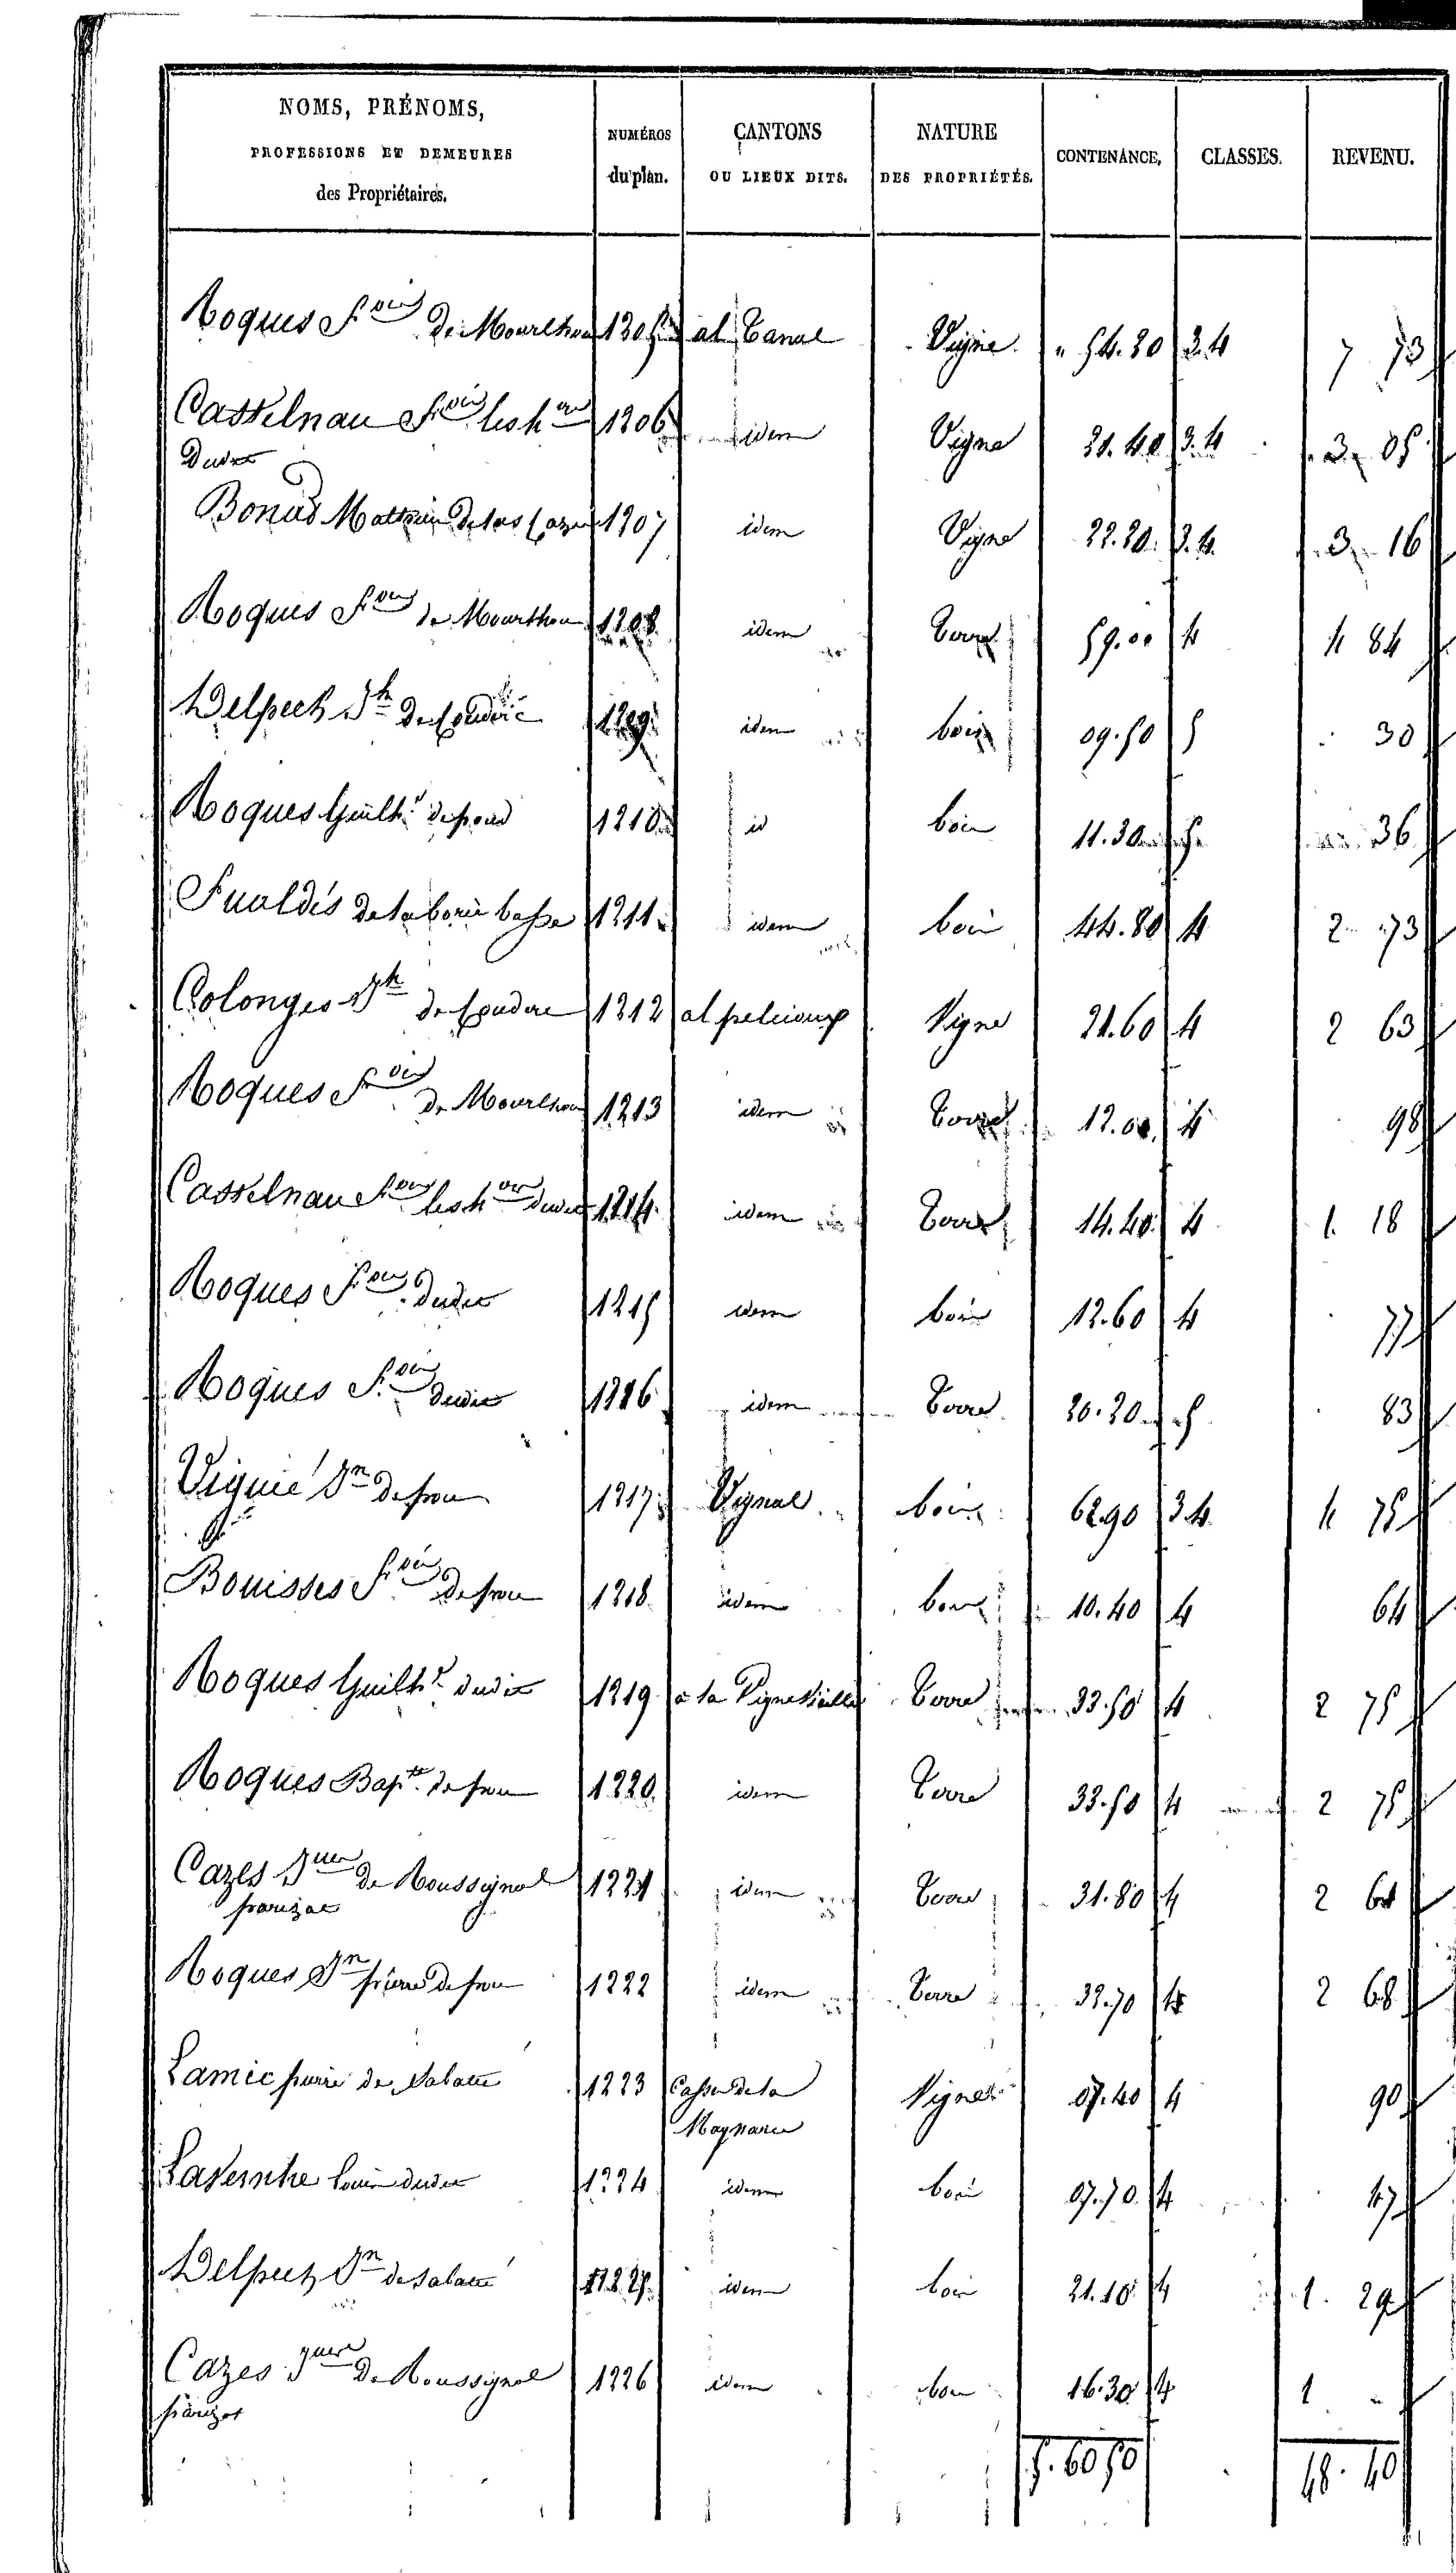 NOMS, PRÉNOMS, PROFESSIONS ET DEMEURES des Propriétaires. NUMÉROS du plan. CANTONS OU LIEUX DITS. NATURE DES PROPRIÉTÉS. CONTENANCE. CLASSES. REVENU.
Roques F.ois de Mourlhon 1205 al Canal Vigne " 54.20 3.4 7 73
Castelnau F.ois les h.ers 1206 idem Vigne 21.40 3.4 3 05
Dudit
Bonas Mathieu de las Cazes 1207 idem Vigne 22.20 3.4 3 16
Roques F.ois de Mourlhon 1208 idem Terre 59.00 4 4 84
Delpech Jh de Couderc 1209 idem bois 09.50 5 30
Roques Guilh. de prou 1210 id bois 11.30 5 36
Fualdés de la borie basse 1211 idem bois 44.80 4 2 73
Colonges Jh de Couderc 1212 al peliçoux Vigne 21.60 4 2 63
Roques F.ois de Mourlhon 1213 idem Terre 12.00 4 98
Castelnau F.ois les h.ers dudit 1214 idem Terre 14.40 4 1. 18
Roques F.ois dudit 1215 idem bois 12.60 4 77
Roques F.ois dudit 1216 idem Terre 20.20 5 83
Viguié Jn de prou 1217 Vignal bois 62.90 3.4 4 75
Bouisses F.ois de prou 1218 idem bois 10.40 4 64
Roques Guilh. dudit 1219 a la Vigne Vieille Terre 33.50 4 2 75
Roques Bap.te de prou 1220 idem Terre 33.50 4 2 75
Cazes J.ques de Roussignol 1221 idem Terre 31.80 4 2 61
parizot
Roques Jn pierre de prou 1222 idem Terre 32.70 4 2 68
Lamic pierre de Salatié 1223 Casse de la Vigne 07.40 4 90
Magnanie
Lavernhe Louis dudit 1224 idem bois 07.70 4 47
Delpech Jn de Salatié 1225 idem bois 21.10 4 1. 29
Cazes J.ques de Roussignol 1226 idem bois 16.30 4 1 "
parizot
5.60 50 48.40